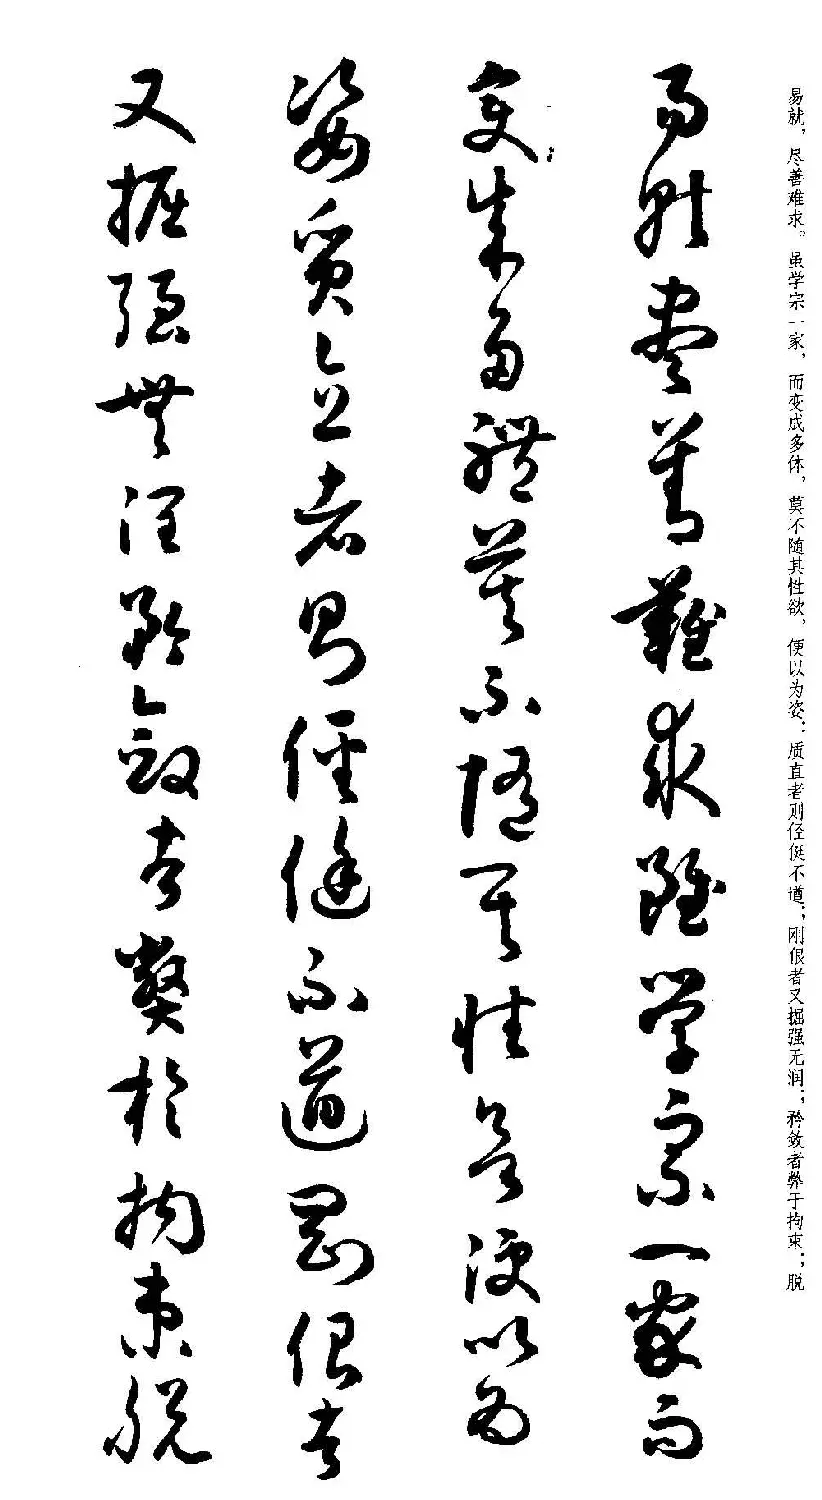 易就，尽善难求。虽学宗一家，而变成多体，莫不随其性欲，便以为姿：质直者则径侹不遒；刚佷者又掘强无润；矜敛者弊于拘束；脱
易就盡善難求雖學宗一家而
變成多體莫不隨其性欲便以為
姿質直者則俓侹不遒剛佷者
又掘强無潤矜斂者弊於拘束脱